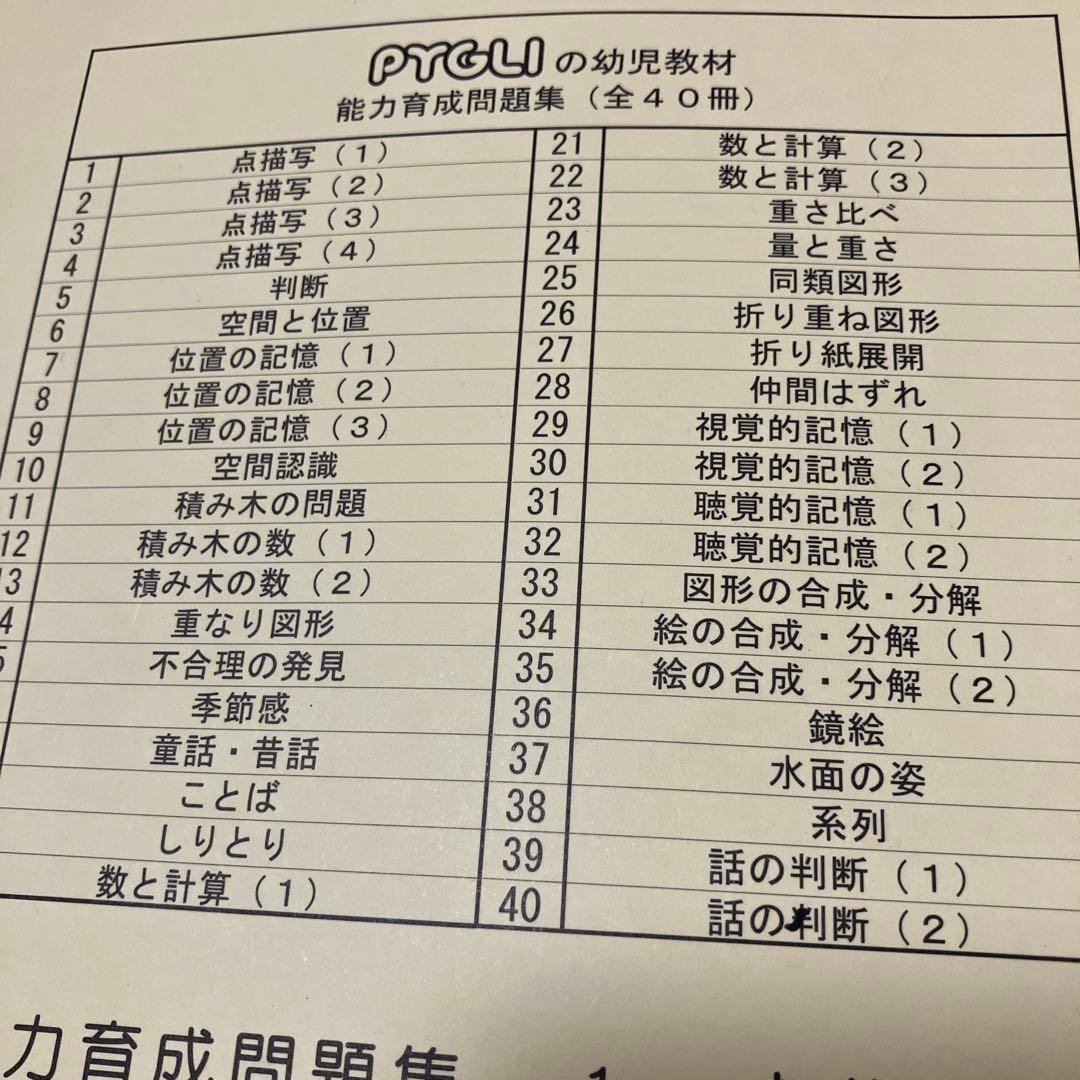 PYGLIの幼児教材
能力育成問題集（全４０冊）
1 点描写（１）
2 点描写（２）
3 点描写（３）
4 点描写（４）
5 判断
6 空間と位置
7 位置の記憶（１）
8 位置の記憶（２）
9 位置の記憶（３）
10 空間認識
11 積み木の問題
12 積み木の数（１）
13 積み木の数（２）
4 重なり図形
5 不合理の発見
季節感
童話・昔話
ことば
しりとり
数と計算（１）
21 数と計算（２）
22 数と計算（３）
23 重さ比べ
24 量と重さ
25 同類図形
26 折り重ね図形
27 折り紙展開
28 仲間はずれ
29 視覚的記憶（１）
30 視覚的記憶（２）
31 聴覚的記憶（１）
32 聴覚的記憶（２）
33 図形の合成・分解
34 絵の合成・分解（１）
35 絵の合成・分解（２）
36 鏡絵
37 水面の姿
38 系列
39 話の判断（１）
40 話の判断（２）
力育成問題集